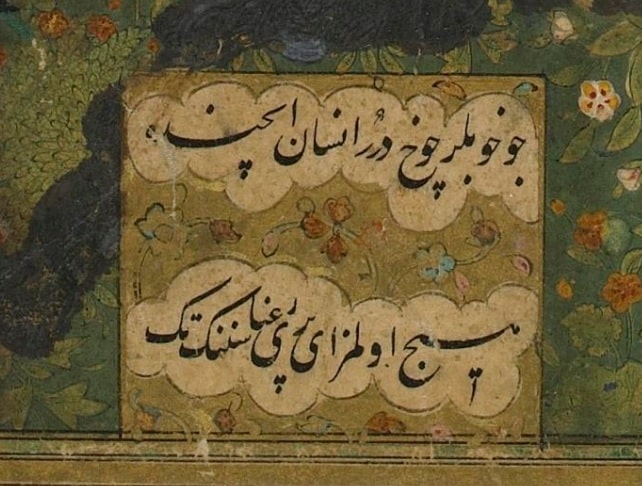 جو خوبلر چوخ دُر انسان ایچنده
هیچ اولمز ای پری رعنا سننک تک